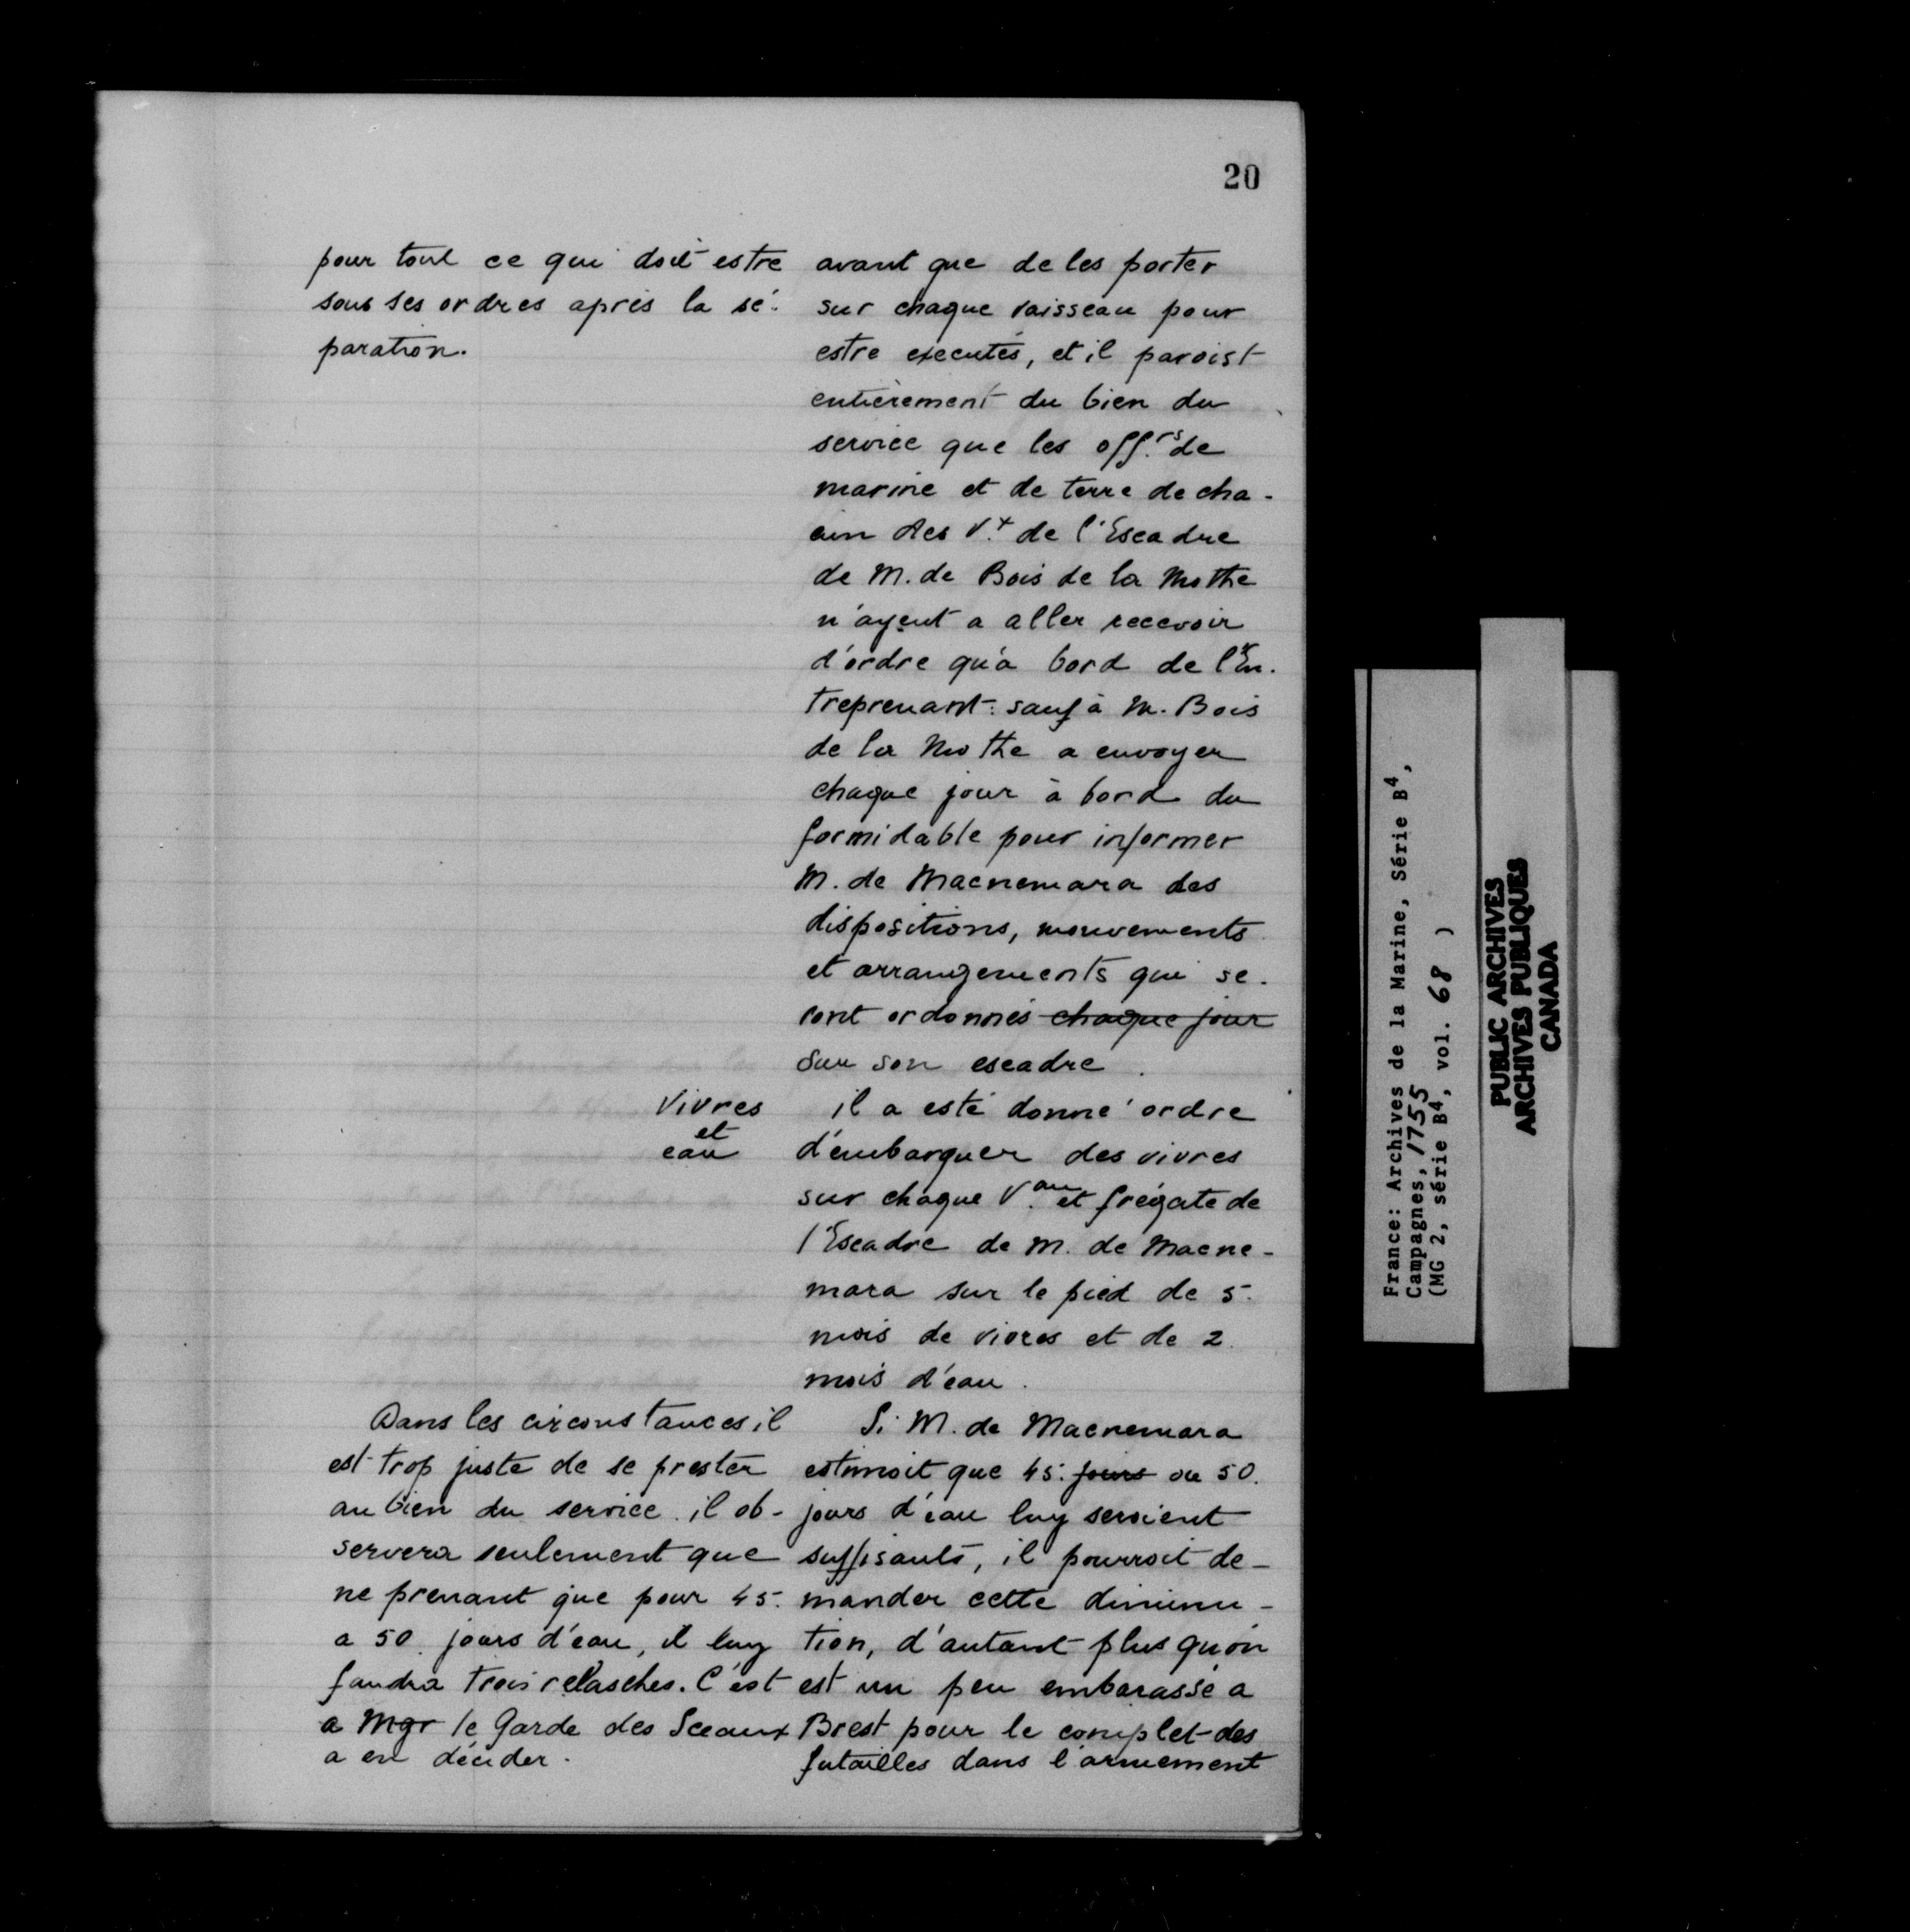 20
pour tout ce qui doit estre
sous ses ordres après la sé-
paration.
avant que de les porter
sur chaque vaisseau pour
estre executés, et il paroist
entièrement du bien du
service que les off.rs de
marine et de terre de cha-
cun des V.x de l'Escadre
de M. de Bois de la Mothe
n'ayent a aller recevoir
d'ordre qu'a bord de l'En-
treprenant: sauf à M. Bois
de la Mothe a envoyer
chaque jour à bord du
formidable pour informer
M. de Macnemara des
dispositions, mouvements
et arrangements qui se-
ront ordonnés chaque jour
sur son escadre.
Vivres
et
eau
il a esté donné ordre
d'embarquer des vivres
sur chaque V.au et frégate de
l'Escadre de M. de Macne-
mara sur le pied de 5.
mois de vivres et de 2.
mois d'eau.
Dans les circonstances il
est trop juste de se prester
au bien du service. il ob-
servera seulement que
ne prenant que pour 45.
a 50. jours d'eau, il luy
faudra trois relasches. C'est
a Mgr le Garde des Sceaux
a en décider.
Si M. de Macnemara
estimoit que 45. jours ou 50.
jours d'eau luy seroient
suffisants, il pourroit de-
mander cette diminu-
tion, d'autant plus qu'on
est un peu embarassé a
Brest pour le complet des
futailles dans l'armement
France: Archives de la Marine, Série B4,
Campagnes, 1755
(MG 2, série B4, vol. 68 )
PUBLIC ARCHIVES
ARCHIVES PUBLIQUES
CANADA